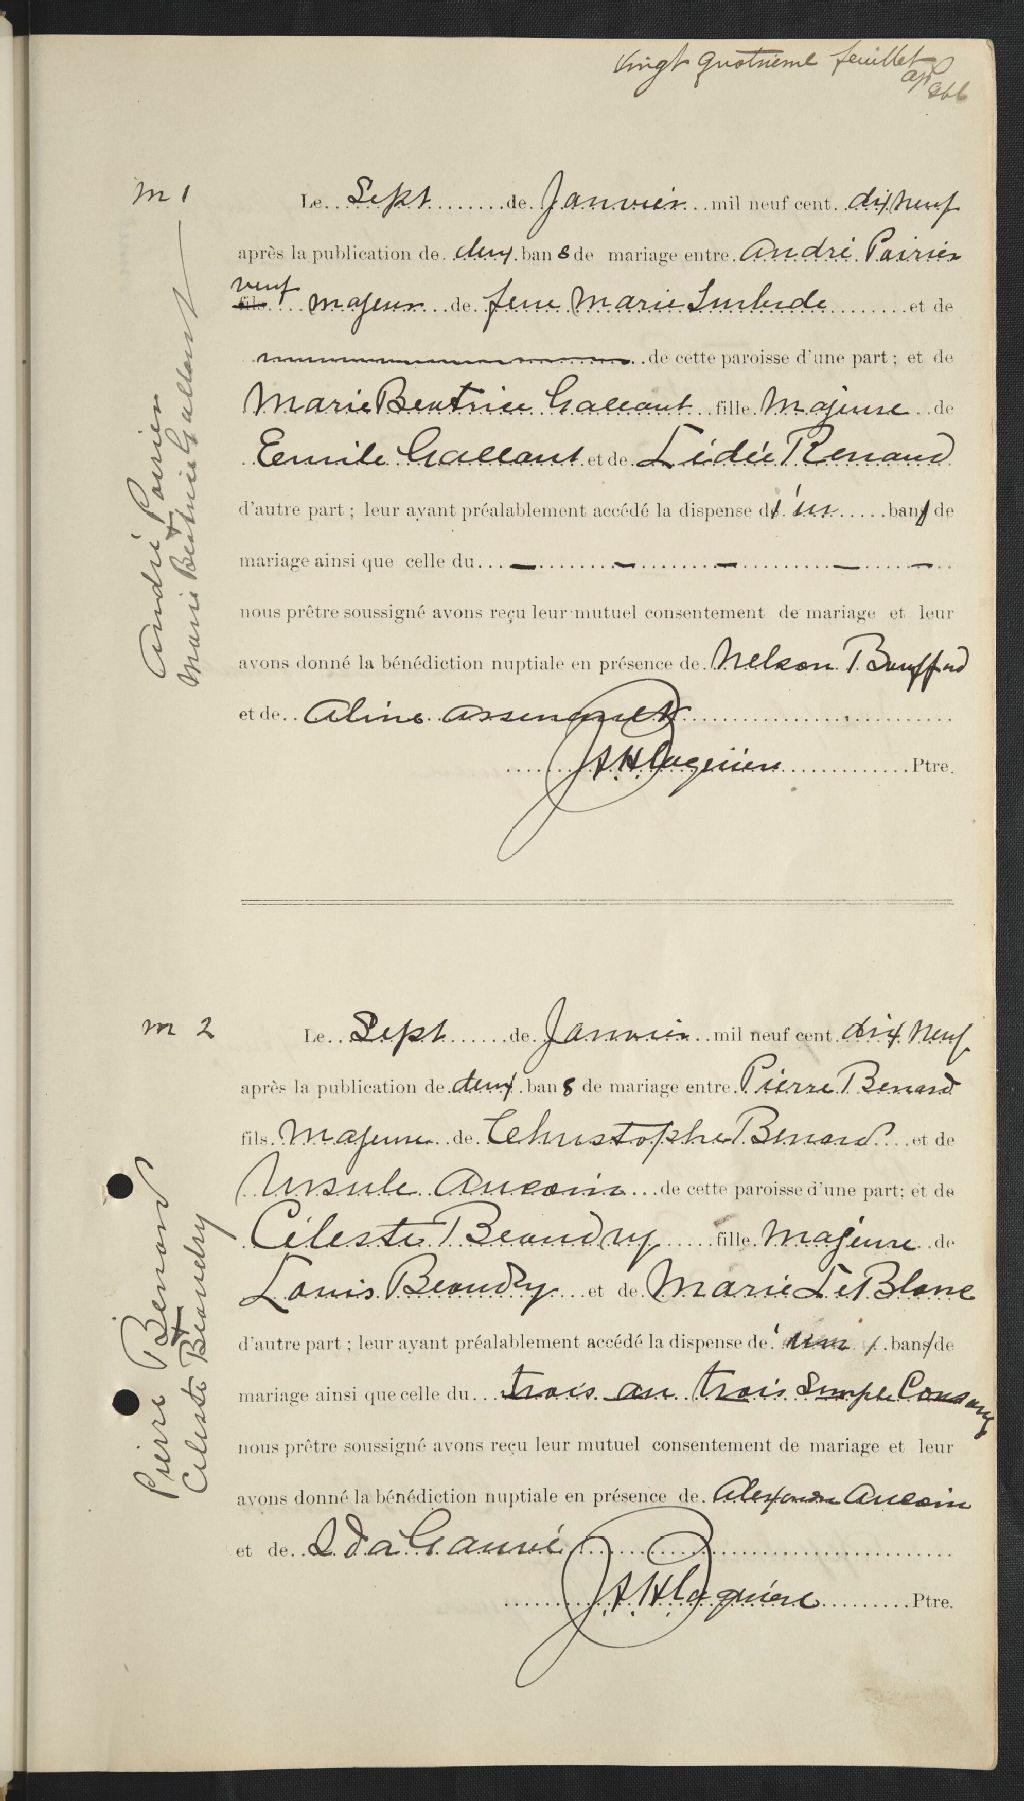 Vingt quatrieme feuillet
M 1
Le Sept de Janvier mil neuf cent dix neuf
après la publication de deux bans de mariage entre André Poirier
veuf
fils majeur de feue Marie et de
de cette paroisse d'une part ; et de
Marie Beatrice Gallant fille Majeure de
Emile Gallant et de Lédée Renaud
d'autre part ; leur ayant préalablement accédé la dispense d'un ban de
mariage ainsi que celle du — — — — —
nous prêtre soussigné avons reçu leur mutuel consentement de mariage et leur
avons donné la bénédiction nuptiale en présence de Nelson Bouffard
et de Aline
Ptre.
André Poirier
+
Marie Beatrice Gallant
M 2
Le Sept de Janvier mil neuf cent dix neuf
après la publication de deux bans de mariage entre Pierre Benard
fils Majeure de Christophe Benard et de
Ursule Aucoin de cette paroisse d'une part; et de
Céleste Beaudry fille Majeure de
Louis Beaudry et de Marie LeBlanc
d'autre part ; leur ayant préalablement accédé la dispense de un bans de
mariage ainsi que celle du trois au trois simple Consang
nous prêtre soussigné avons reçu leur mutuel consentement de mariage et leur
avons donné la bénédiction nuptiale en présence de Alexandre Aucoin
et de Ida Gauvé
Ptre.
Pierre Benard
+
Céleste Beaudry